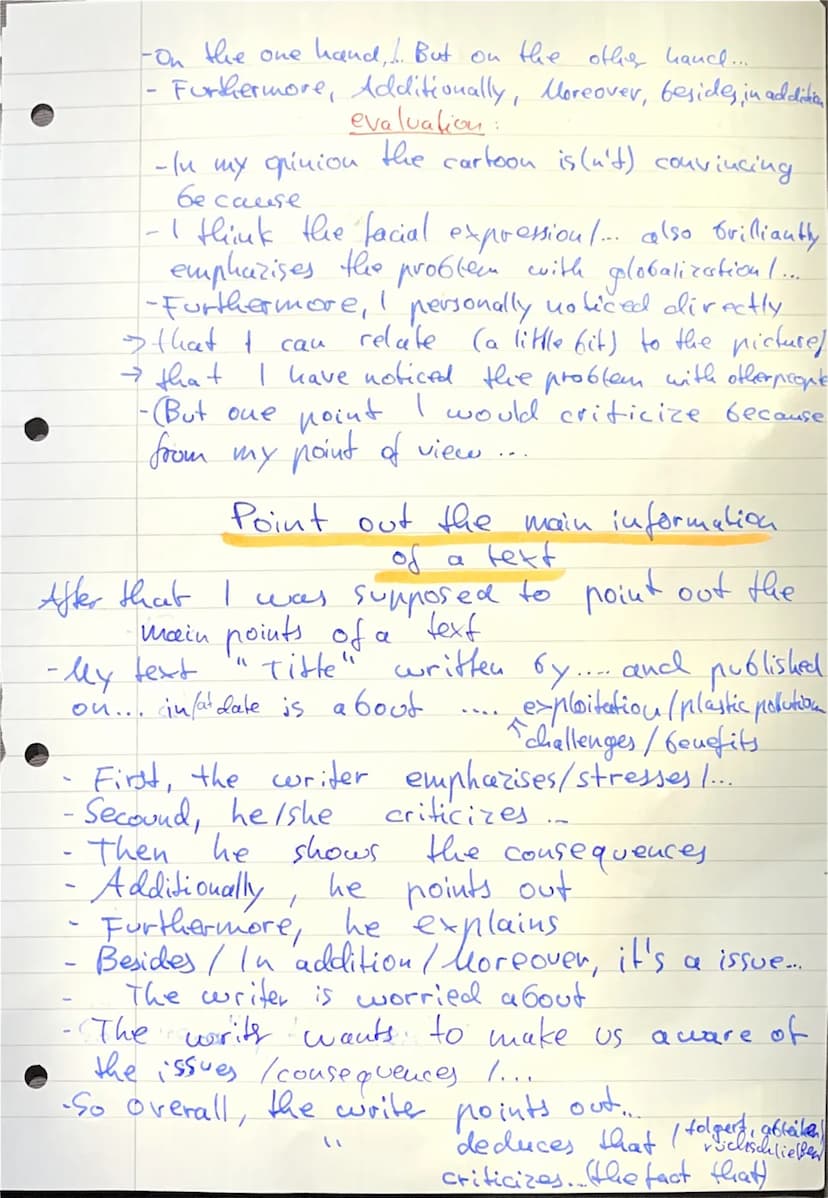 -On the one hand,!.. But on the other hand...
- Furthermore, Additionally, Moreover, besides, in addition
evaluation:
-In my opinion the cartoon is(n't) convincing
because
- I think the facial expression/... also brilliantly
emphazises the problem with globalization/...
-Furthermore, I personally noticed directly
→ that I can relate (a little bit) to the picture/
→ that I have noticed the problem with other people
-(But one point I would criticize because
from my point of view ...
Point out the main information
of a text
After that I was supposed to point out the
main points of a text
-My text "Title" written by.... and published
on... in/at date is about .... exploitation/plastic pollution
challenges/benefits
- First, the writer emphazises/stresses/...
- Secound, he/she criticizes ...
- Then he shows the consequences
- Additionally, he points out
- Furthermore, he explains
- Besides / In addition / Moreover, it's a issue...
- The writer is worried about
- The writer wants to make us aware of
the issues /consequences /...
-So overall, the writer points out...
" deduces that / folgert, ableiten/
rückschließen
criticizes...(the fact that)